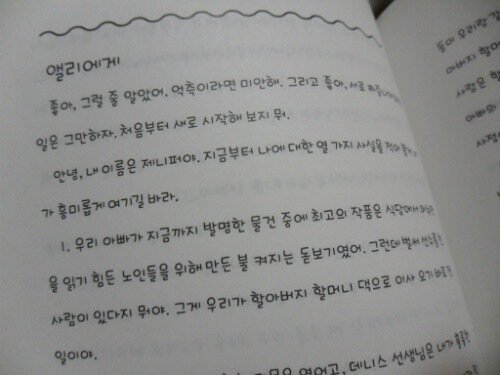 앨리에게
좋아, 그럴 줄 알았어. 억측이라면 미안해. 그리고 좋아, 서로
일은 그만하자. 처음부터 새로 시작해 보지 뭐.
안녕, 내 이름은 제니퍼야. 지금부터 나에 대한 열 가지 사실을
가 흥미롭게 여기길 바라.
1. 우리 아빠가 지금까지 발명한 물건 중에 최고의 작품은 식당에서
을 읽기 힘든 노인들을 위해 만든 불 켜지는 돋보기였어. 그런데 벌써
사람이 있다지 뭐야. 그게 우리가 할아버지 할머니 댁으로 이사 오기
일이야.
열었고, 데니스 선생님은 내가
들이 우리랑
아버지 할머
사람은
아빠의